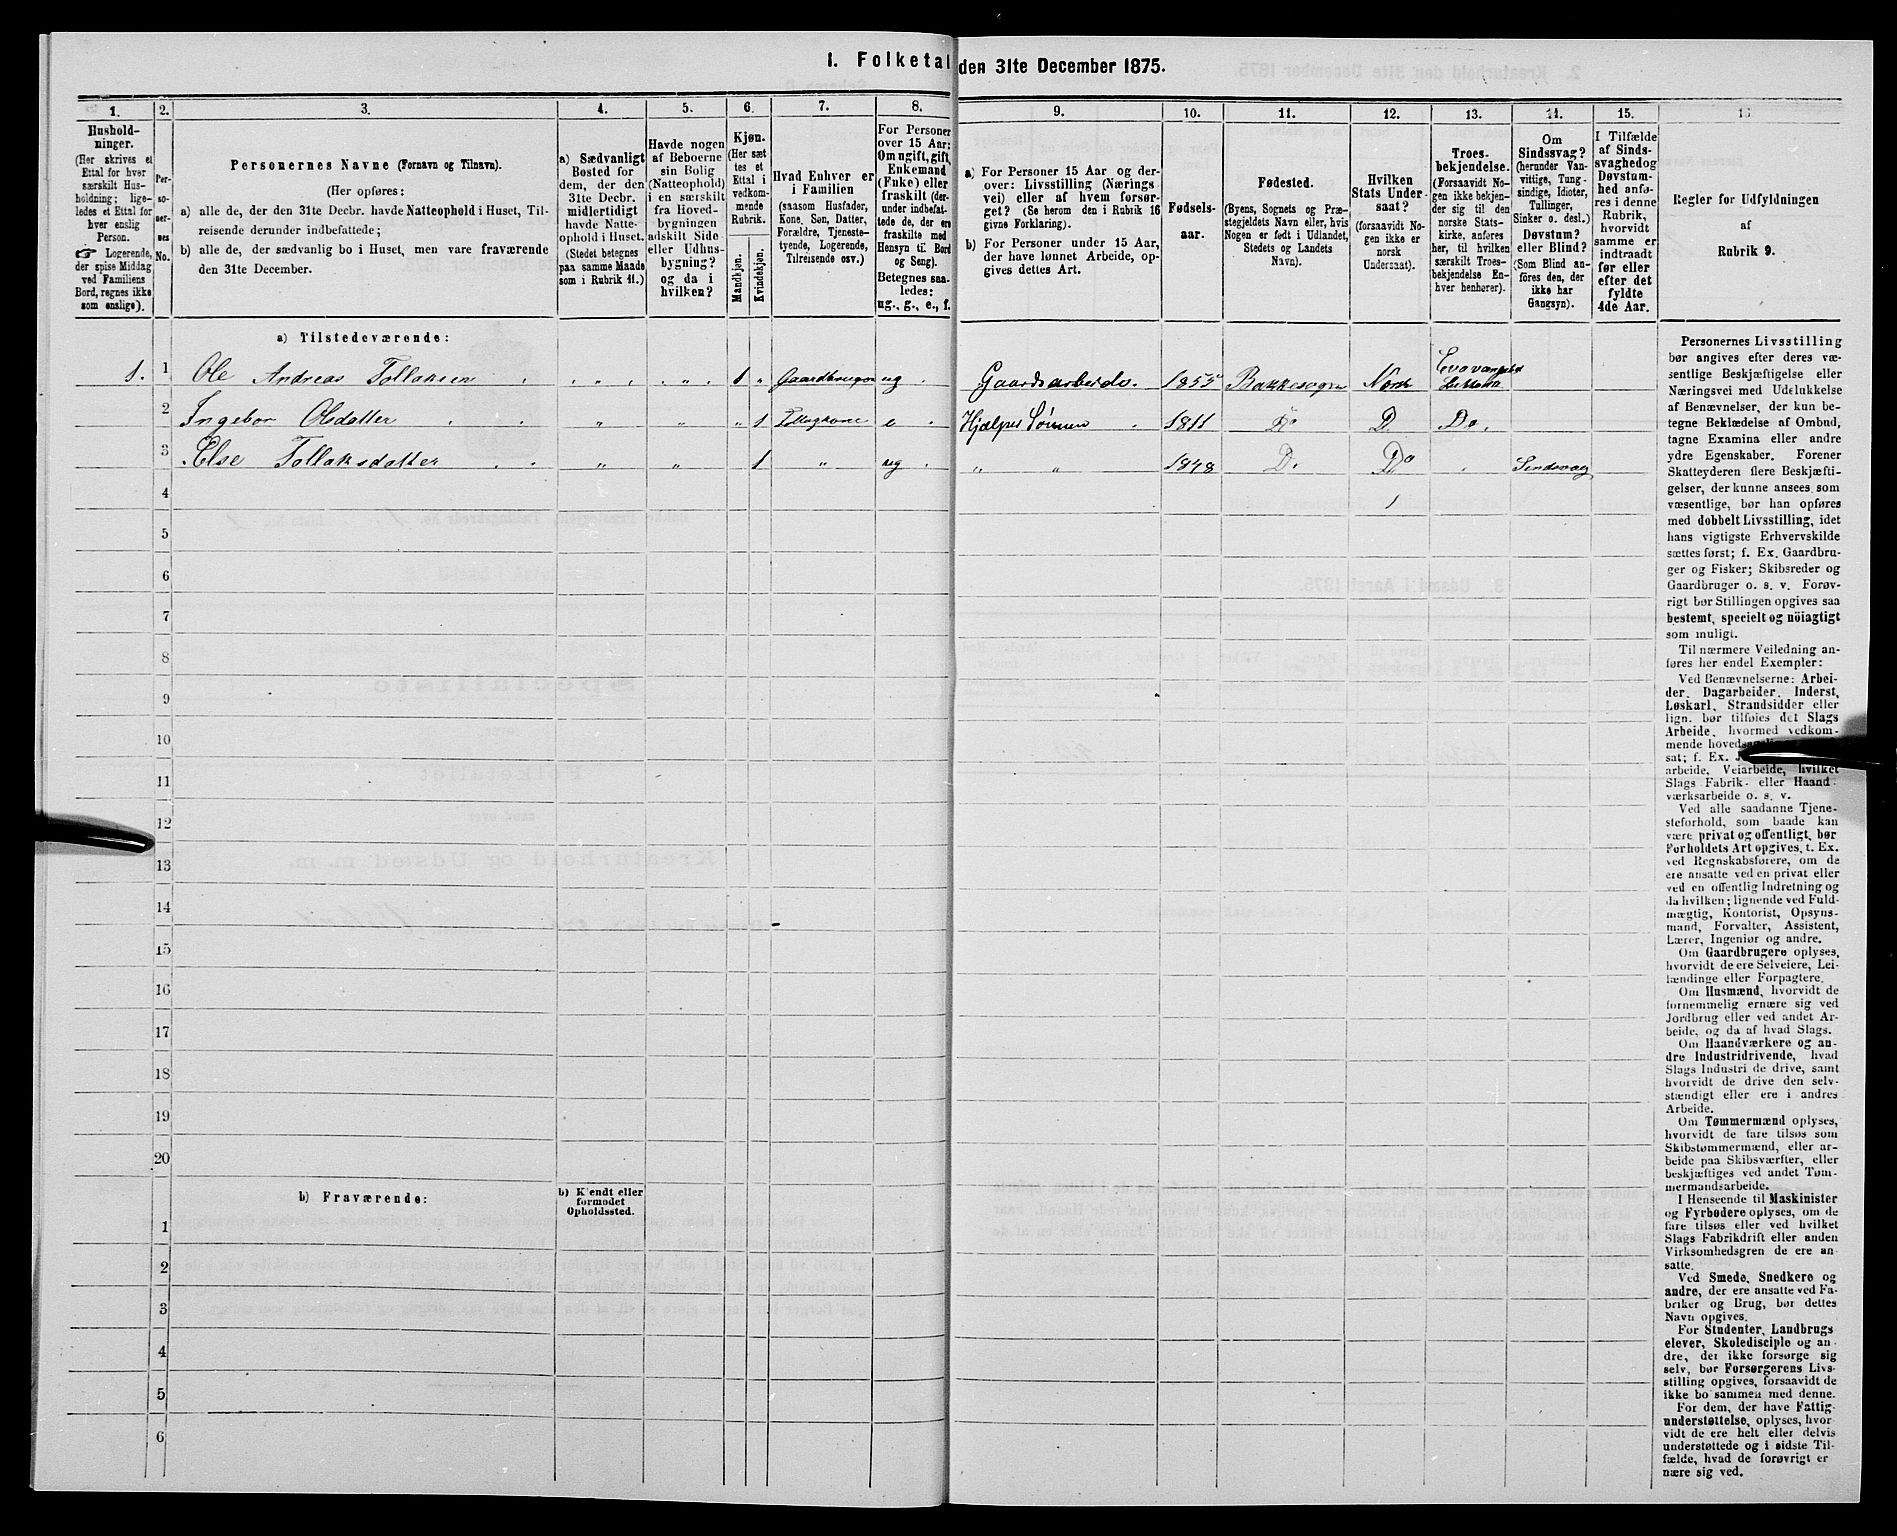 I. Folketal den 31te December 1875.
1.
Hushold-
ninger.
(Her skrives et
Ettal for hver
særskilt Hus-
holdning; lige-
ledes et Ettal for
hver enslig
Person.
☞ Logerende,
der spise Middag
ved Familiens
Bord, regnes ikke
som enslige).
2.
Per-
so-
ner-
nes
No.
3.
Personernes Navne (Fornavn og Tilnavn).
(Her opføres:
a) alle de, der den 31te Decbr. havde Natteophold i Huset, Til-
reisende derunder indbefattede;
b) alle de, der sædvanlig bo i Huset, men vare fraværende
den 31te December.
4.
a) Sædvanligt
Bosted for
dem, der den
31te Decbr.
midlertidigt
havde Natte-
ophold i Huset.
(Stedet betegnes
paa samme Maade
som i Rubrik 11.)
5.
Havde nogen
af Beboerne
sin Bolig
(Natteophold)
i en særskilt
fra Hoved-
bygningen
adskilt Side
eller Udhus-
bygning?
og da i
hvilken?
6.
Kjøn.
(Her sæt
tes et
Ettal i
vedkom-
mende
Rubrik.
Mandkjøn.
Kvindekjøn.
7.
Hvad Enhver er
i Familien
(saasom Husfader,
Kone, Søn, Datter,
Forældre, Tjeneste-
tyende, Logerende,
Tilreisende osv.)
8.
For Personer
over 15 Aar:
Om ugift, gift,
Enkemand
(Enke) eller
fraskilt (der-
under indbefat-
tede de, der ere
fraskilte med
Hensyn til Bord
og Seng).
Betegnes saa-
ledes:
ug., g., e., f.
9.
a) For Personer 15 Aar og der-
over: Livsstilling (Nærings
vei) eller af hvem forsør-
get? (Se herom den i Rubrik 16
givne Forklaring).
b) For Personer under 15 Aar,
der have lønnet Arbeide, op-
gives dettes Art.
10.
Fødsels-
aar.
11.
Fødested.
(Byens, Sognets og Præ-
stegjeldets Navn eller, hvis
Nogen er født i Udlandet,
Stedets og Landets
Navn).
12.
Hvilken
Stats Under-
saat?
(forsaavidt No-
gen ikke er
norsk
Undersaat).
13.
Troes-
bekjendelse.
(Forsaavidt No-
gen ikke bekjen-
der sig til den
norske Stats-
kirke, anføres
her, til hvilken
særskilt Troes-
bekjendelse En-
hver henhører).
14.
Om
Sindssvag?
(herunder Van-
vittige, Tung-
sindige, Idioter,
Tullinger,
Sinker o. desl.)
Døvstum?
eller Blind?
(Som Blind an-
føres den, der
ikke har
Gangsyn).
15.
I Tilfælde
af Sinds-
svaghed og
Døvstum-
hed anfø-
res i denne
Rubrik,
hvorvidt
samme er
indtraadt
før eller
efter det
fyldte
4de Aar.
Regler for Udfyldningen
af
Rubrik 9.
a) Tilstedeværende:
1. 1 Ole Andreas Tollaksen " " " " 1 " Gaardbruger ug Gaardsarbeide. 1855 Bakkesogn Norsk
2 Ingebor Olsdatter " " " 1 e Hjælper Sønnen 1811 Do D Do.
3 Else Tollaksdatter " " 1 " ug " " 1848 D. Do Sindsvag
4
5
6
7
8
9
10
11
12
13
14
15
16
17
18
19
20
b) Fraværende:
b) Kjendt eller
formodet
Opholdssted.
1
2
3
4
5
6
Personernes Livsstilling
bør angives efter deres væ-
sentlige Beskjæftigelse eller
Næringsvei med Udelukkelse
af Benævnelser, der kun be-
tegne Beklædelse af Ombud,
tagne Examina eller andre
ydre Egenskaber. Forener
Skatteyderen flere Beskjæfti-
gelser, der kunne ansees som
væsentlige, bør han opføres
med dobbelt Livsstilling, idet
hans vigtigste Erhvervskilde
sættes først; f. Ex. Gaardbru-
ger og Fisker; Skibsreder og
Gaardbruger o. s. v. Forøv-
rigt bør Stillingen opgives saa
bestemt, specielt og nöiagtigt
som muligt.
Til nærmere Veiledning an-
føres her endel Exempler:
Ved Benævnelserne: Arbei-
der, Dagarbeider, Inderst,
Løskarl, Strandsidder eller
lign. bør tilføies det Slags
Arbeide, hvormed vedkom-
mende
sat; f. Ex.
arbeide, Veiarbeide, hvilket
Slags Fabrik- eller Haand-
værksarbeide o. s. v.
Ved alle saadanne Tjene-
steforhold, som baade kan
være privat og offentligt, bør
Forholdets Art opgives, f. Ex.
ved Regnskabsførere, om de
ere ansatte ved en privat eller
ved en offentlig Indretning og
da hvilken; lignende ved Fuld-
mægtig, Kontorist, Opsyns-
mand, Forvalter, Assistent,
Lærer, Ingeniør og andre.
Om Gaardbrugere oplyses,
hvorvidt de ere Selveiere, Lei-
lændinge eller Forpagtere.
Om Husmænd, hvorvidt de
fornemmelig ernære sig ved
Jordbrug eller ved andet Ar-
beide, og da af hvad Slags.
Om Haandværkere og an-
dre Industridrivende, hvad
Slags Industri de drive, samt
hvorvidt de drive den selv-
stændigt eller ere i andres
Arbeide.
Om Tømmermænd oplyses,
hvorvidt de fare tilsøs som
Skibstømmermænd, eller ar-
beide paa Skibsværfter, eller
beskjæftiges ved andet Tøm-
mermandsarbeide.
I Henseende til Maskinister
og Fyrbødere oplyses, om de
fare tilsøs eller ved hvilket
Slags Fabrikdrift eller anden
Virksomhedsgren de ere an-
satte.
Ved Smede, Snedkere og
andre, der ere ansatte ved Fa-
briker og Brug, bør dettes
Navn opgives.
For Studenter, Landbrugs
elever, Skoledisciple og an-
dre, der ikke forsørge sig
selv, bør Forsørgerens Livs-
stilling opgives, forsaavidt de
ikke bo sammen med denne.
For dem, der have Fattig-
understøttelse, oplyses, hvor-
vidt de ere helt eller delvis
understøttede og i sidste Til-
fælde, hvad de forøvrigt er
nære sig ved.